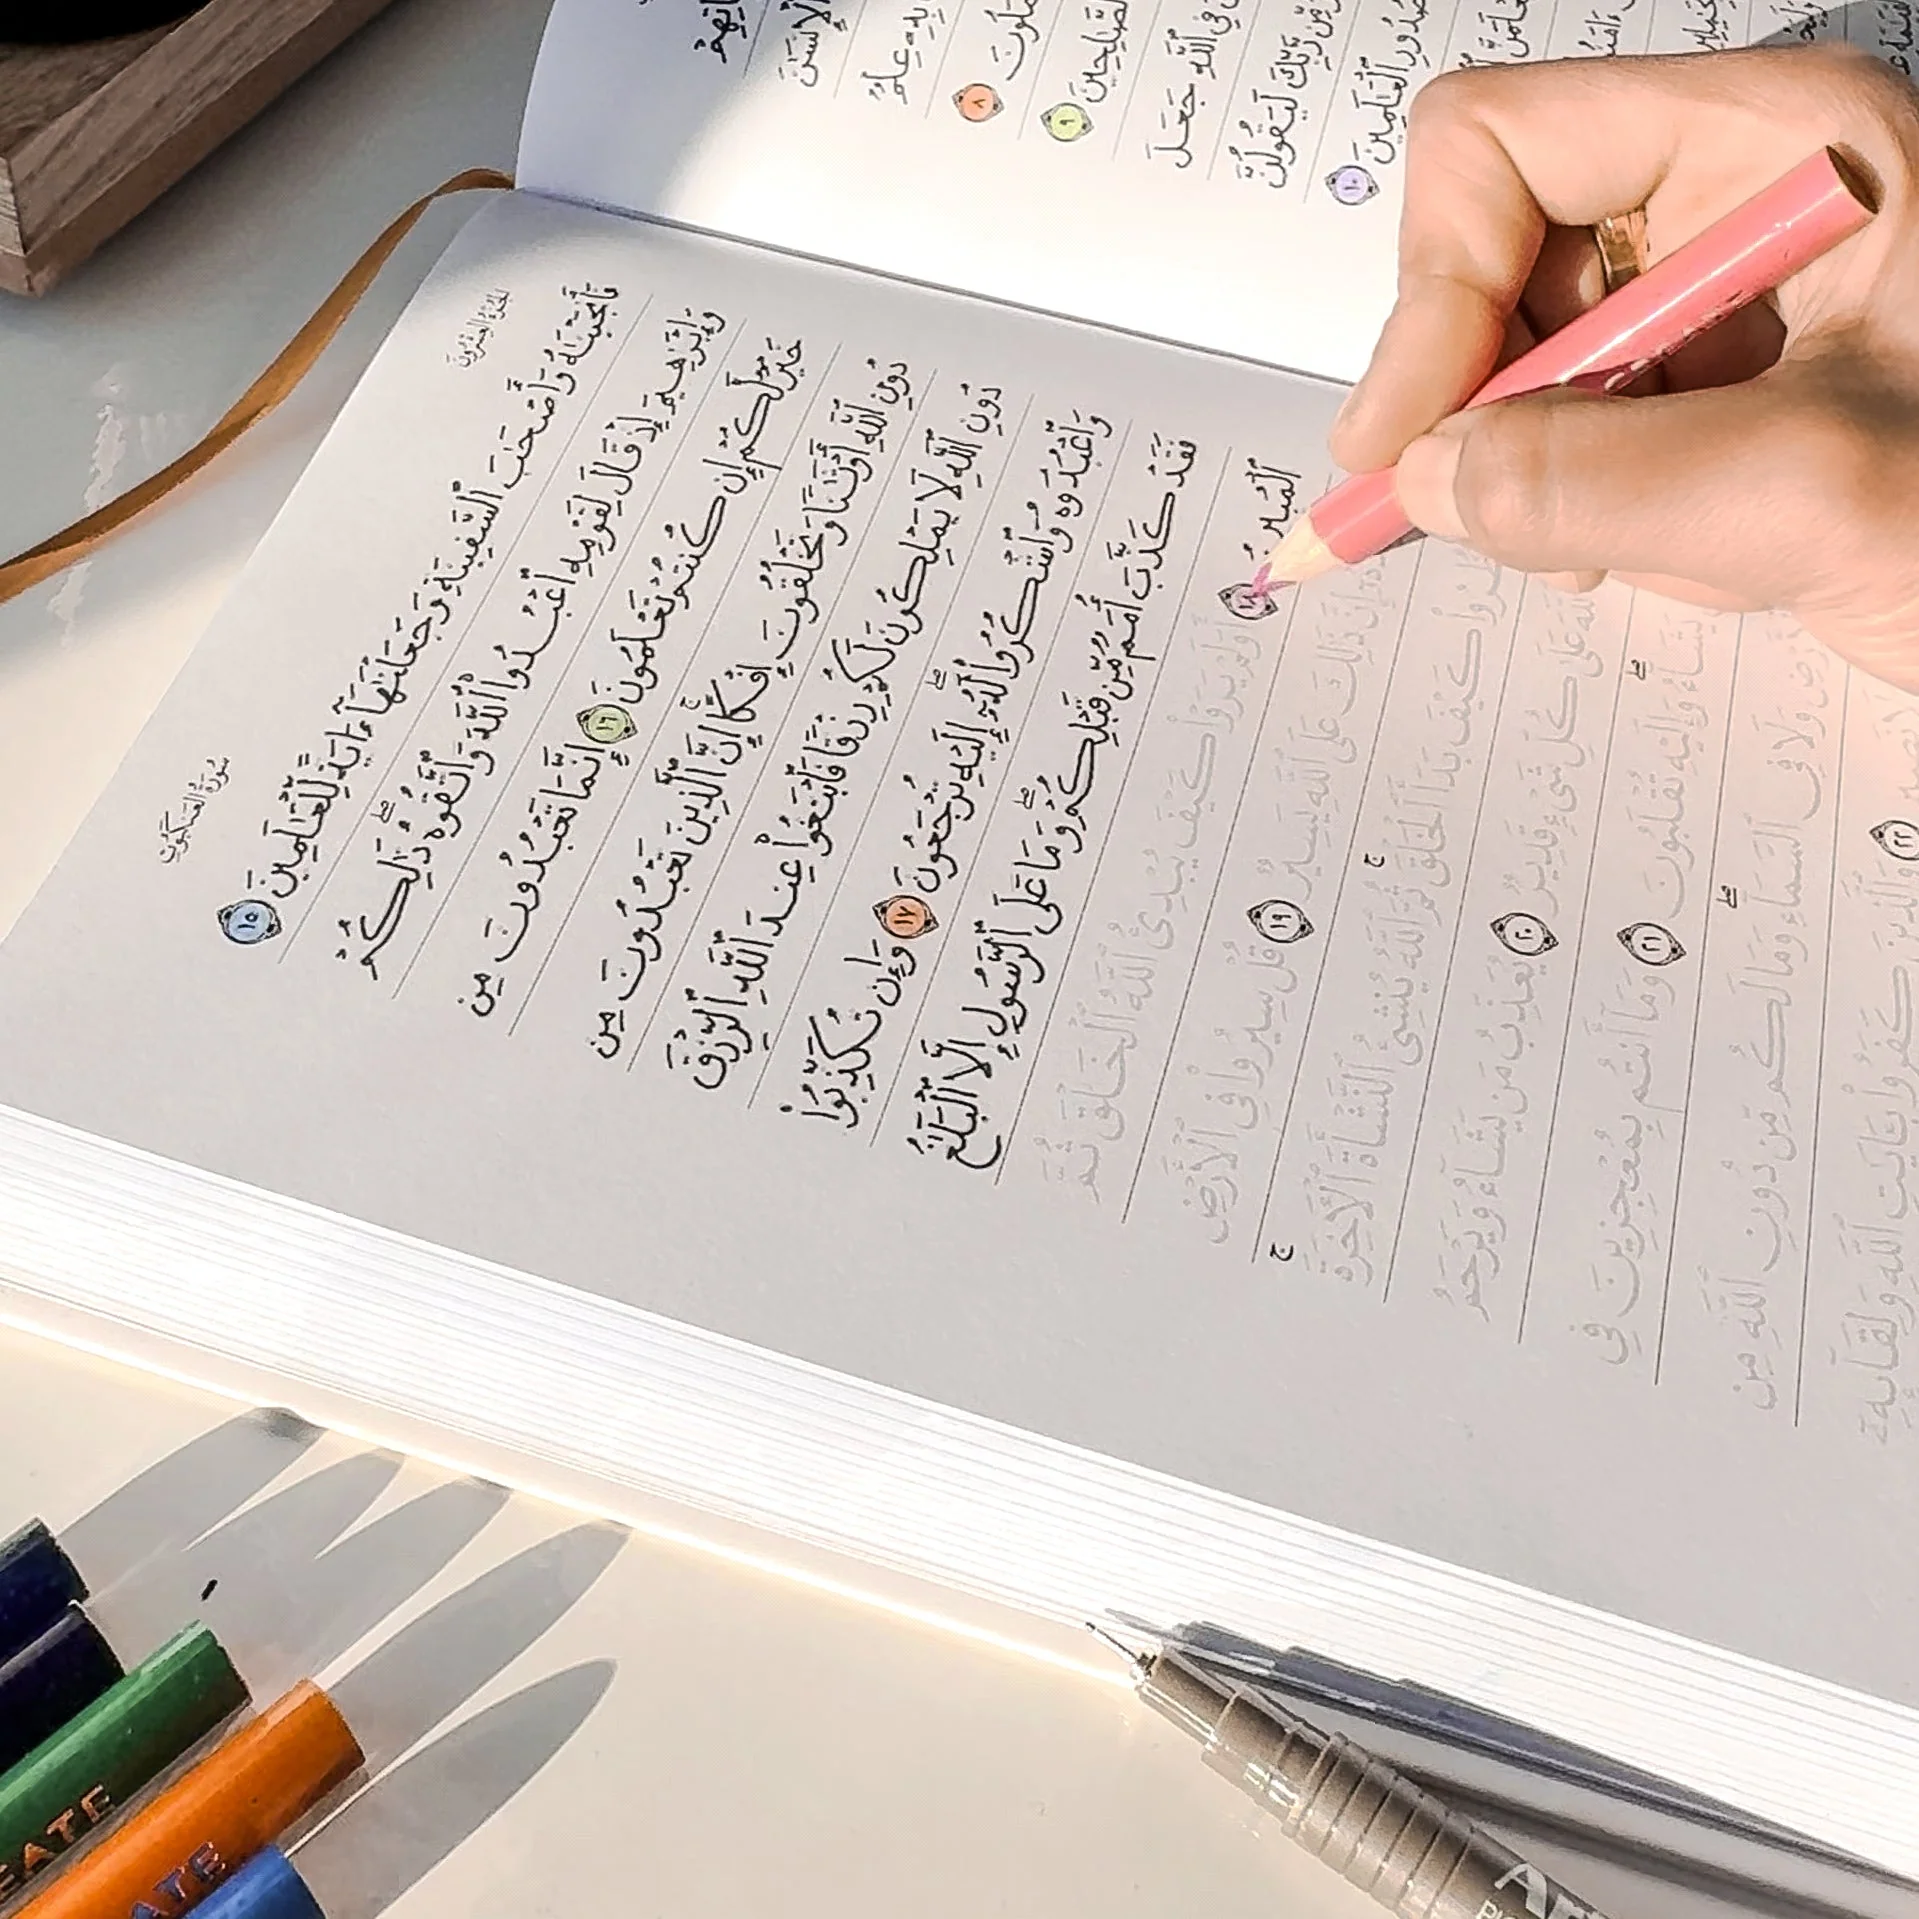 ٱلْإِنسَٰنَ
بِهِۦ عِلْمٌ
٨
ٱلصَّٰلِحِينَ ٩
فِى ٱللَّهِ جَعَلَ
مِّن رَّبِّكَ لَيَقُولُنَّ
صُدُورِ ٱلْعَٰلَمِينَ ١٠
الجُزْءُ العِشْرُونَ
سُورَةُ العَنكَبُوتِ
فَأَنجَيْنَٰهُ وَأَصْحَٰبَ ٱلسَّفِينَةِ وَجَعَلْنَٰهَآ ءَايَةً لِّلْعَٰلَمِينَ ١٥
وَإِبْرَٰهِيمَ إِذْ قَالَ لِقَوْمِهِ ٱعْبُدُوا۟ ٱللَّهَ وَٱتَّقُوهُ ۖ ذَٰلِكُمْ
خَيْرٌ لَّكُمْ إِن كُنتُمْ تَعْلَمُونَ ١٦ إِنَّمَا تَعْبُدُونَ مِن
دُونِ ٱللَّهِ أَوْثَٰنًا وَتَخْلُقُونَ إِفْكًا ۚ إِنَّ ٱلَّذِينَ تَعْبُدُونَ مِن
دُونِ ٱللَّهِ لَا يَمْلِكُونَ لَكُمْ رِزْقًا فَٱبْتَغُوا۟ عِندَ ٱللَّهِ ٱلرِّزْقَ
وَٱعْبُدُوهُ وَٱشْكُرُوا۟ لَهُۥٓ ۖ إِلَيْهِ تُرْجَعُونَ ١٧ وَإِن تُكَذِّبُوا۟
فَقَدْ كَذَّبَ أُمَمٌ مِّن قَبْلِكُمْ ۖ وَمَا عَلَى ٱلرَّسُولِ إِلَّا ٱلْبَلَٰغُ
ٱلْمُبِينُ ١٨ أَوَلَمْ يَرَوْا۟ كَيْفَ يُبْدِئُ ٱللَّهُ ٱلْخَلْقَ ثُمَّ
إِنَّ ذَٰلِكَ عَلَى ٱللَّهِ يَسِيرٌ ١٩ قُلْ سِيرُوا۟ فِى ٱلْأَرْضِ
كَيْفَ بَدَأَ ٱلْخَلْقَ ۚ ثُمَّ ٱللَّهُ يُنشِئُ ٱلنَّشْأَةَ ٱلْأَخِرَةَ ۚ
عَلَىٰ كُلِّ شَىْءٍ قَدِيرٌ ٢٠ يُعَذِّبُ مَن يَشَآءُ وَيَرْحَمُ
يَشَآءُ ۖ وَإِلَيْهِ تُقْلَبُونَ ٢١ وَمَآ أَنتُم بِمُعْجِزِينَ فِى
وَلَا فِى ٱلسَّمَآءِ ۖ وَمَا لَكُم مِّن دُونِ ٱللَّهِ مِن
٢٢ وَٱلَّذِينَ كَفَرُوا۟ بِـَٔايَٰتِ ٱللَّهِ وَلِقَآئِهِۦٓ
EATE
ATE